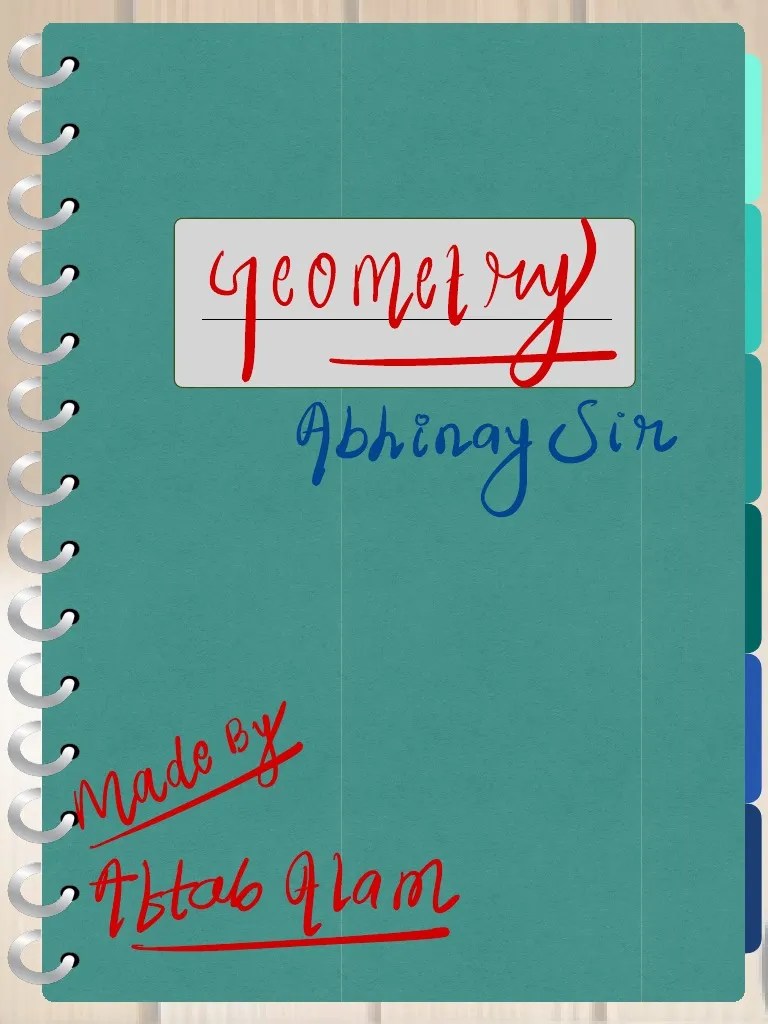 Geometry
Abhinay Sir
Made By
Aftab Alam